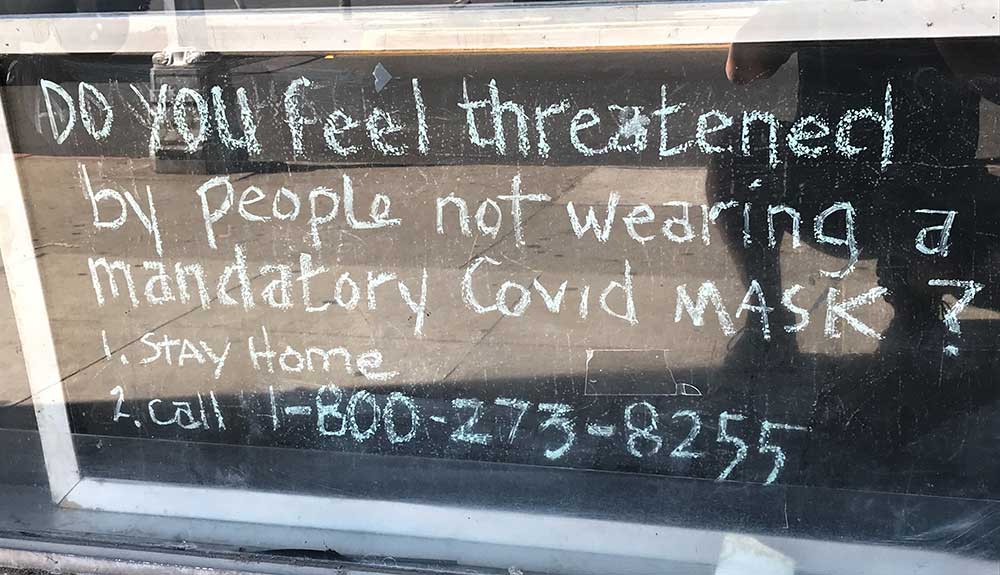 DO YOU feel threatened
by people not wearing a
mandatory Covid MASK ?
1. STAY Home
2. call 1-800-273-8255